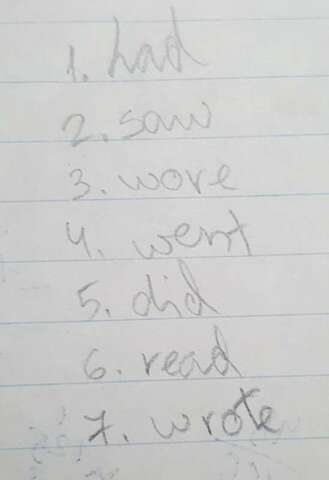 1. had
2. saw
3. wore
4. went
5. did
6. read
7. wrote